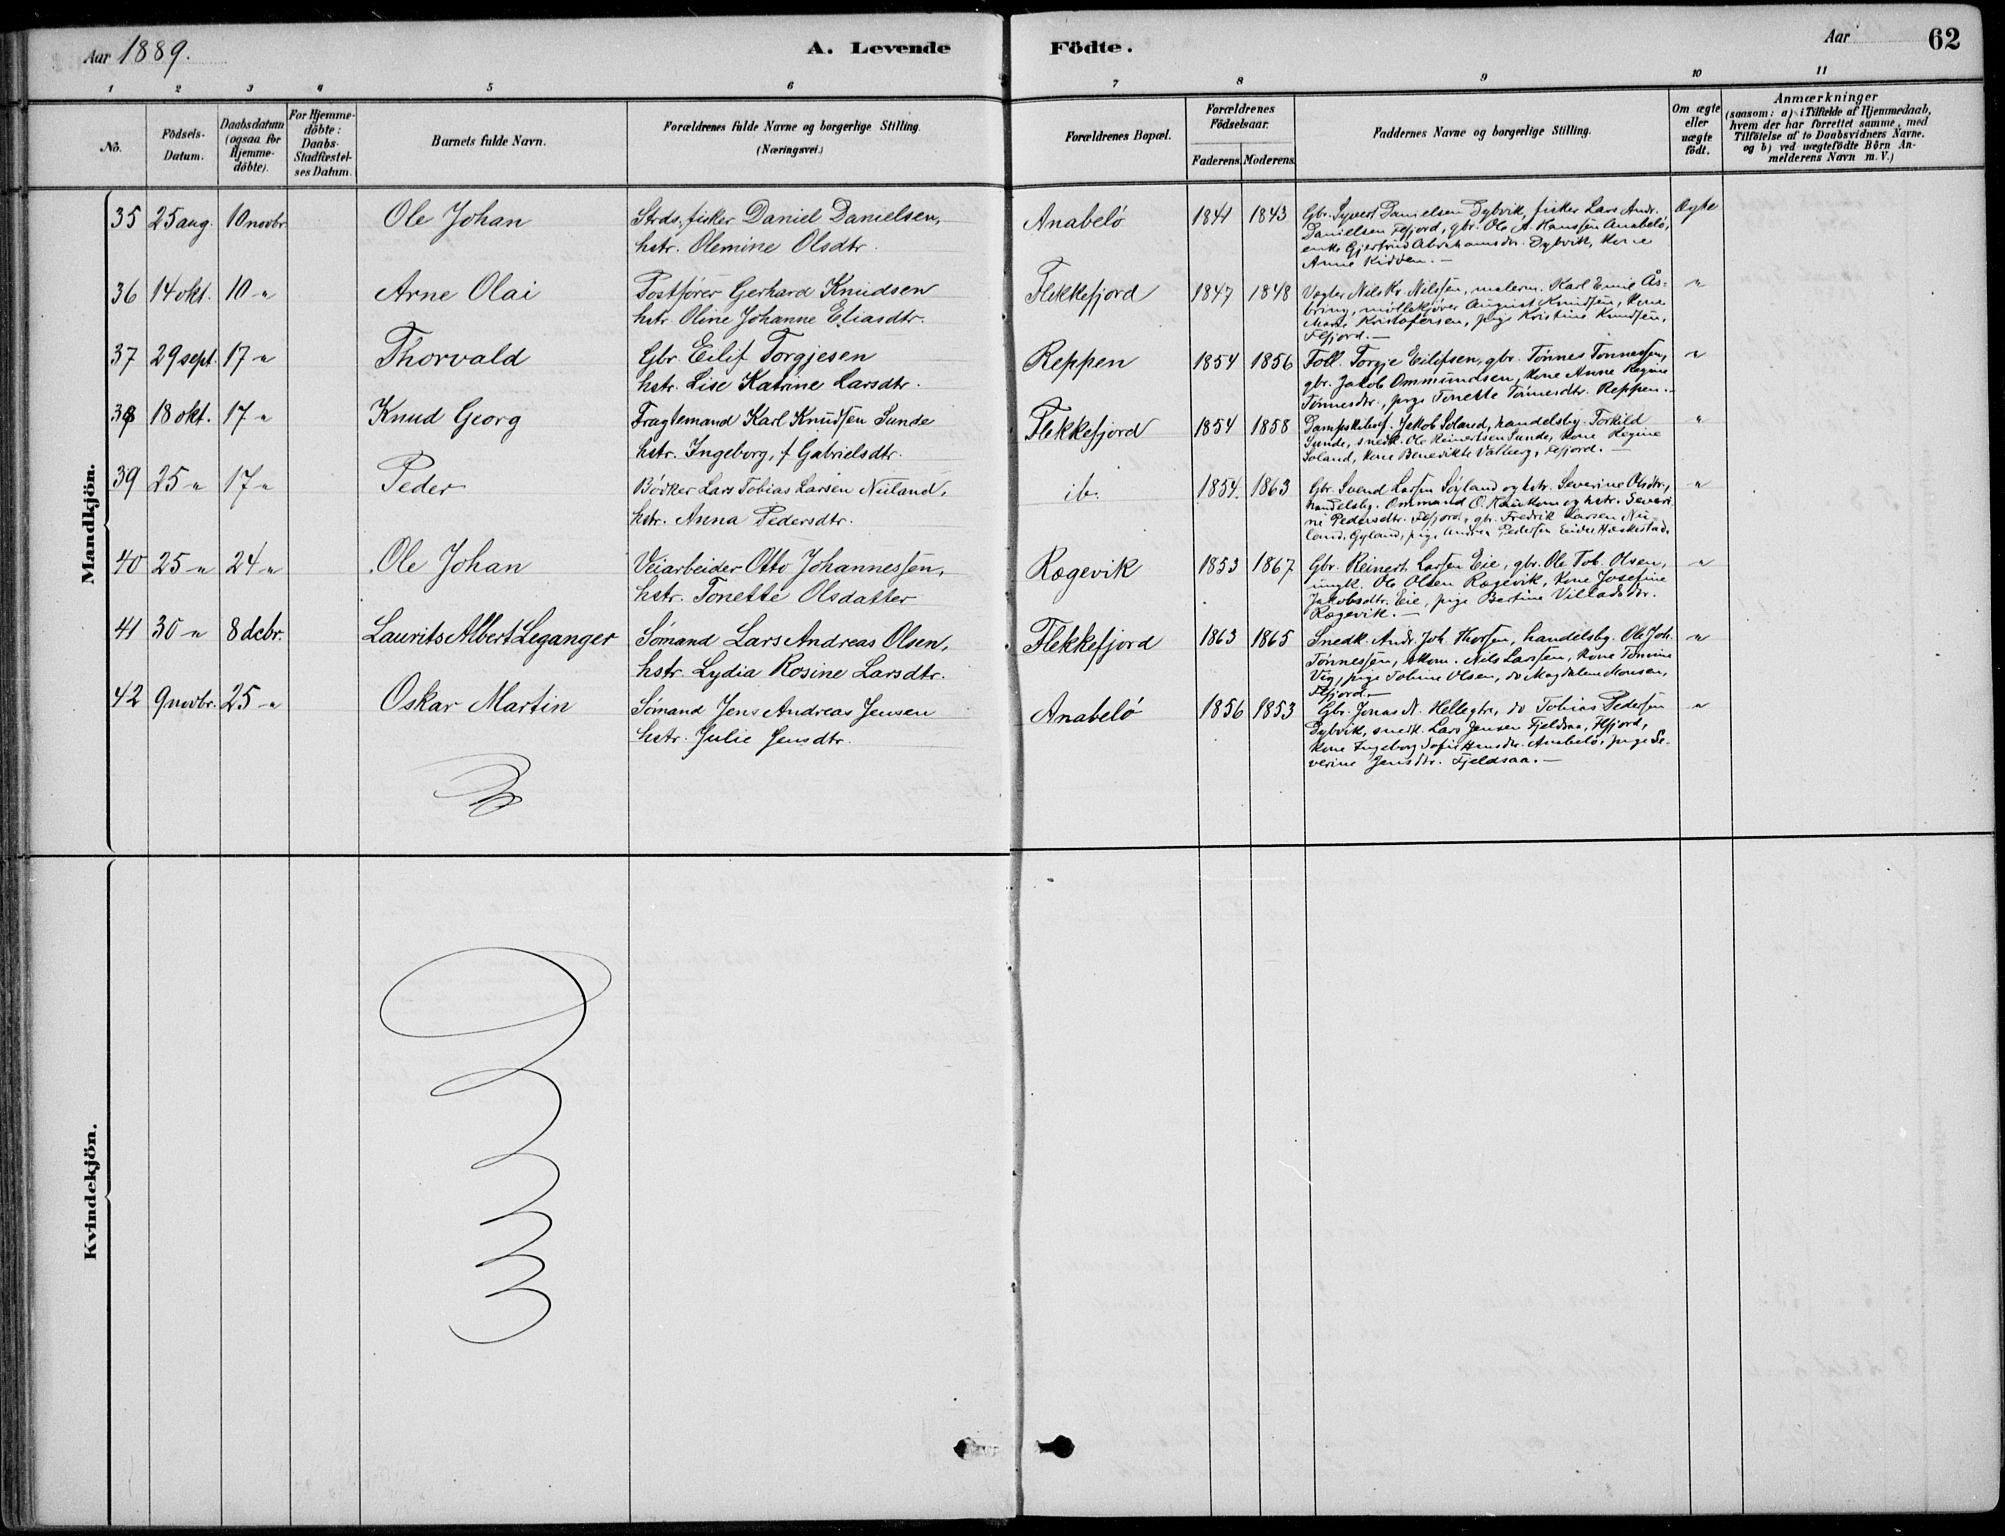 Aar 1889.
A. Levende Födte.
Aar
62
1 2 3 4 5 6 7 8 9 10 11
No.
Födsels-Datum.
Daabsdatum (ogsaa for Hjemme-döbte).
For Hjemme-döbte: Daabs-Stadfæstel-ses Datum.
Barnets fulde Navn.
Forældrenes fulde Navne og borgerlige Stilling.
(Næringsvei.)
Forældrenes Bopæl.
Forældrenes Födselsaar.
Faderens. Moderens.
Faddernes Navne og borgerlige Stilling.
Om ægte eller uægte födt.
Anmærkninger
(saasom: a) i Tilfælde af Hjemmedaab,
hvem der har forrettet samme, med
Tilföielse af to Daabsvidners Navne.
og b) ved uægtefödte Börn An-
melderens Navn m. V.)
Mandkjön.
35 25 aug. 10 novbr. Ole Johan Strds. fisker Daniel Danielsen, Anabelö 1841 1843 Gbr. Syvert Danielsen Dybvik, fisker Lars Andr. Ægte
hstr. Olemine Olsdtr. Danielsen Ffjord, gbr. Ole A. Hanssen Anabelö,
enke Gjertrud Abrahamsdtr. Dybvik, kone
Anne Kidden. —
36 14 okt. 10 " Arne Olai Postförer Gerhard Knudsen Flekkefjord 1847 1848 Vægter Nils Kr. Nilssen, malerm. Karl Emil Ås- "
hstr. Oline Johanne Eliasdtr. bring, möllekjörer August Knudsen, kone
Kristofersen, pige Kristine Knudsen,
Ffjord. —
37 29 sept. 17 " Thorvald Gbr. Eilif Torgjesen Reppen 1854 1856 Folk. Torje Eilifsen, gbr. Tönnes Tönnessen, "
hstr. Lise Katrine Larsdtr. gbr. Jakob Ommundsen, kone Anne Regine
Tönnesdtr., pige Tonette Tönnesdtr. Reppen. —
38 18 okt. 17 " Knud Georg Fragtemand Karl Knudsen Sunde Flekkefjord 1854 1858 Dampskibsf. Jakob Soland, handelsbg. Torkild "
hstr. Ingeborg, f. Gabrielsdtr. Sunde, snedk. Ole Reinertsen Sunde, kone Regine
Soland, kone Benedikte Vatberg, Ffjord. —
39 25 " 17 " Peder Bödker Lars Tobias Larsen Neiland, ib. 1854. 1863 Gbr. Svend Larsen Söyland og hstr. Severine Olsdtr., "
hstr. Anna Pedersdtr. handelsbg. Ommund O. og hstr. Severi-
ne Pedersdtr. Ffjord, gbr. Fredrik Larsen Nu-
land, Gyland, pige Andrea Pedersen Eide, Hækestad.
40 25 " 24 " Ole Johan Veiarbeider Otto Johannessen, Rægevik 1853 1867 Gbr. Reinert Larsen Eie, gbr. Ole Tob. Olsen, "
hstr. Tonette Olsdatter ungk. Ole Olsen Rægevik, kone Josefine
Jakobsdtr. Eie, pige Bertine Villadsdtr.
Rægevik. —
41 30 " 8 decbr. Laurits Albert Leganger Sömand Lars Andreas Olsen, Flekkefjord 1863 1865 Snedk. Andr. Joh. Thorsen, handelsbg. Ole Joh. "
hstr. Lydia Rosine Larsdtr. Tönnessen, skom. Nils Larssen, kone Tomine
Vig, pige Tobine Olsen, do Magdalene Monsen,
Ffjord. —
42 9 novbr. 25 " Oskar Martin Sömand Jens Andreas Jensen Anabelö 1856 1853 Gbr. Jonas N. Hellegtre, do Tobias Pedersen "
hstr. Julie Jensdtr. Dybvik, snedk. Lars Jensen Fjeldsaa, Ffjord,
kone Ingeborg Sofie Hansdtr. Anabelö, pige Se-
verine Jensdtr. Fjeldsaa. —
Kvindekjön.